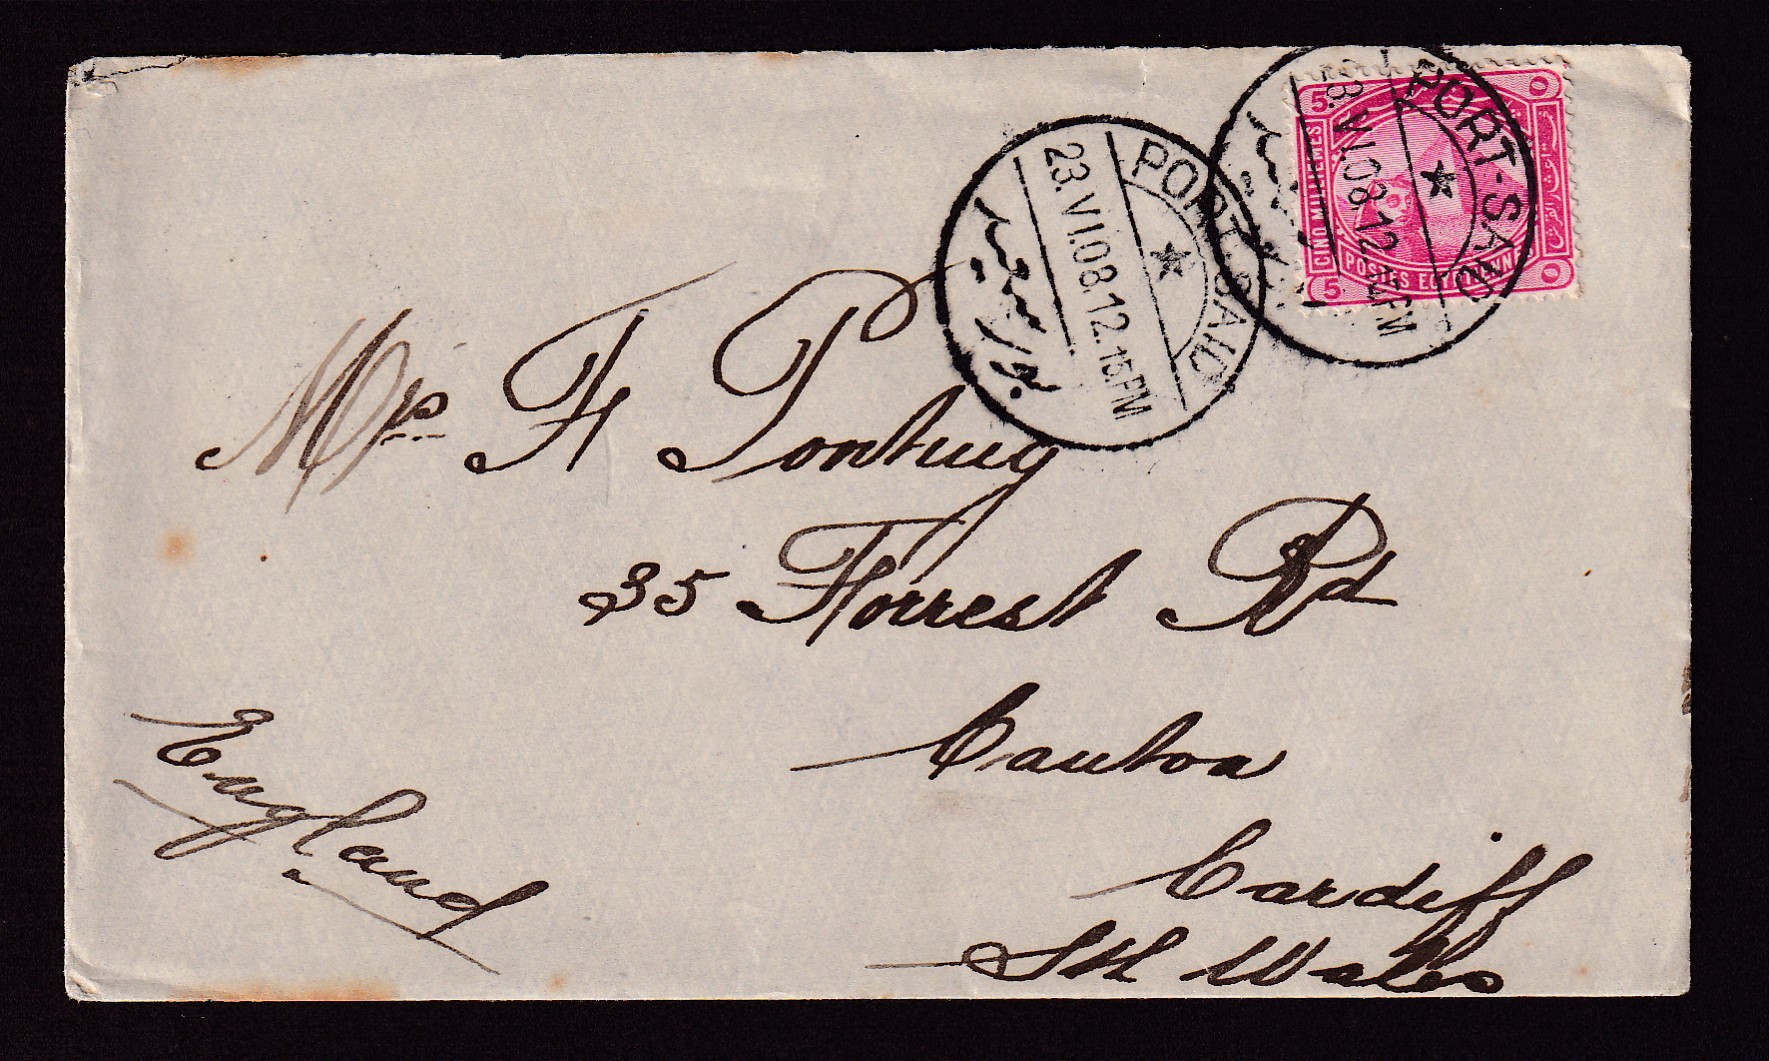 PORT-SAID
23.VI.08.12.15PM
بور سعيد
PORT-SAID
23.VI.08.12.15PM
بور سعيد
5
5
CINQ MILLIEMES
POSTES EGYPTIENNES
Mrs F Ponting
35 Forrest Rd
Canton
Cardiff
Sth Wales
England